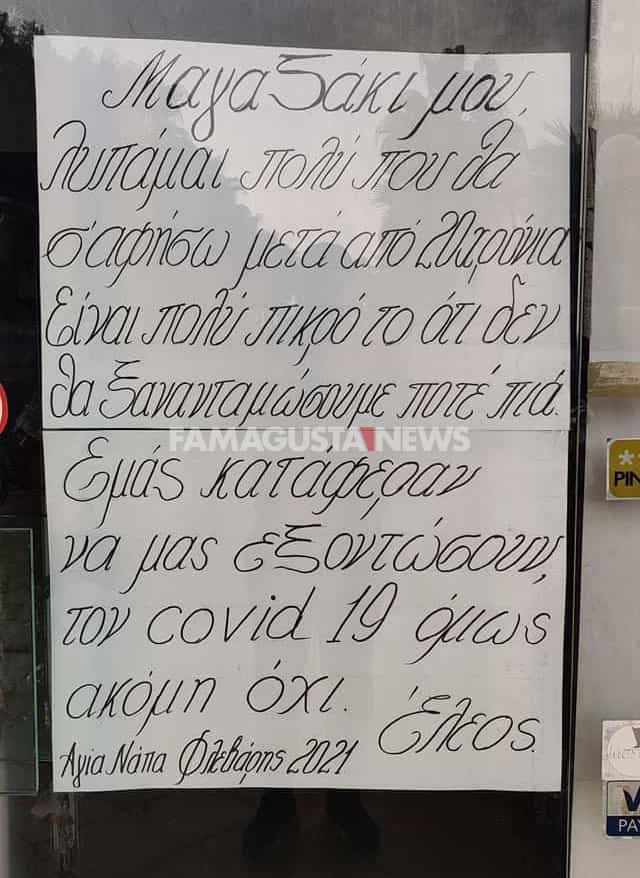 Μαγαζάκι μου,
λυπάμαι πολύ που θα
σ'αφήσω μετά από 20χρόνια
Είναι πολύ πικρό το ότι δεν
θα ξανανταμώσουμε ποτέ πιά.
FAMAGUSTA NEWS
Εμάς κατάφεραν
να μας εξοντώσουν,
τον covid 19 όμως
ακόμη όχι.
Έλεος.
Αγία Νάπα Φλεβάρης 2021
PIN
PAY